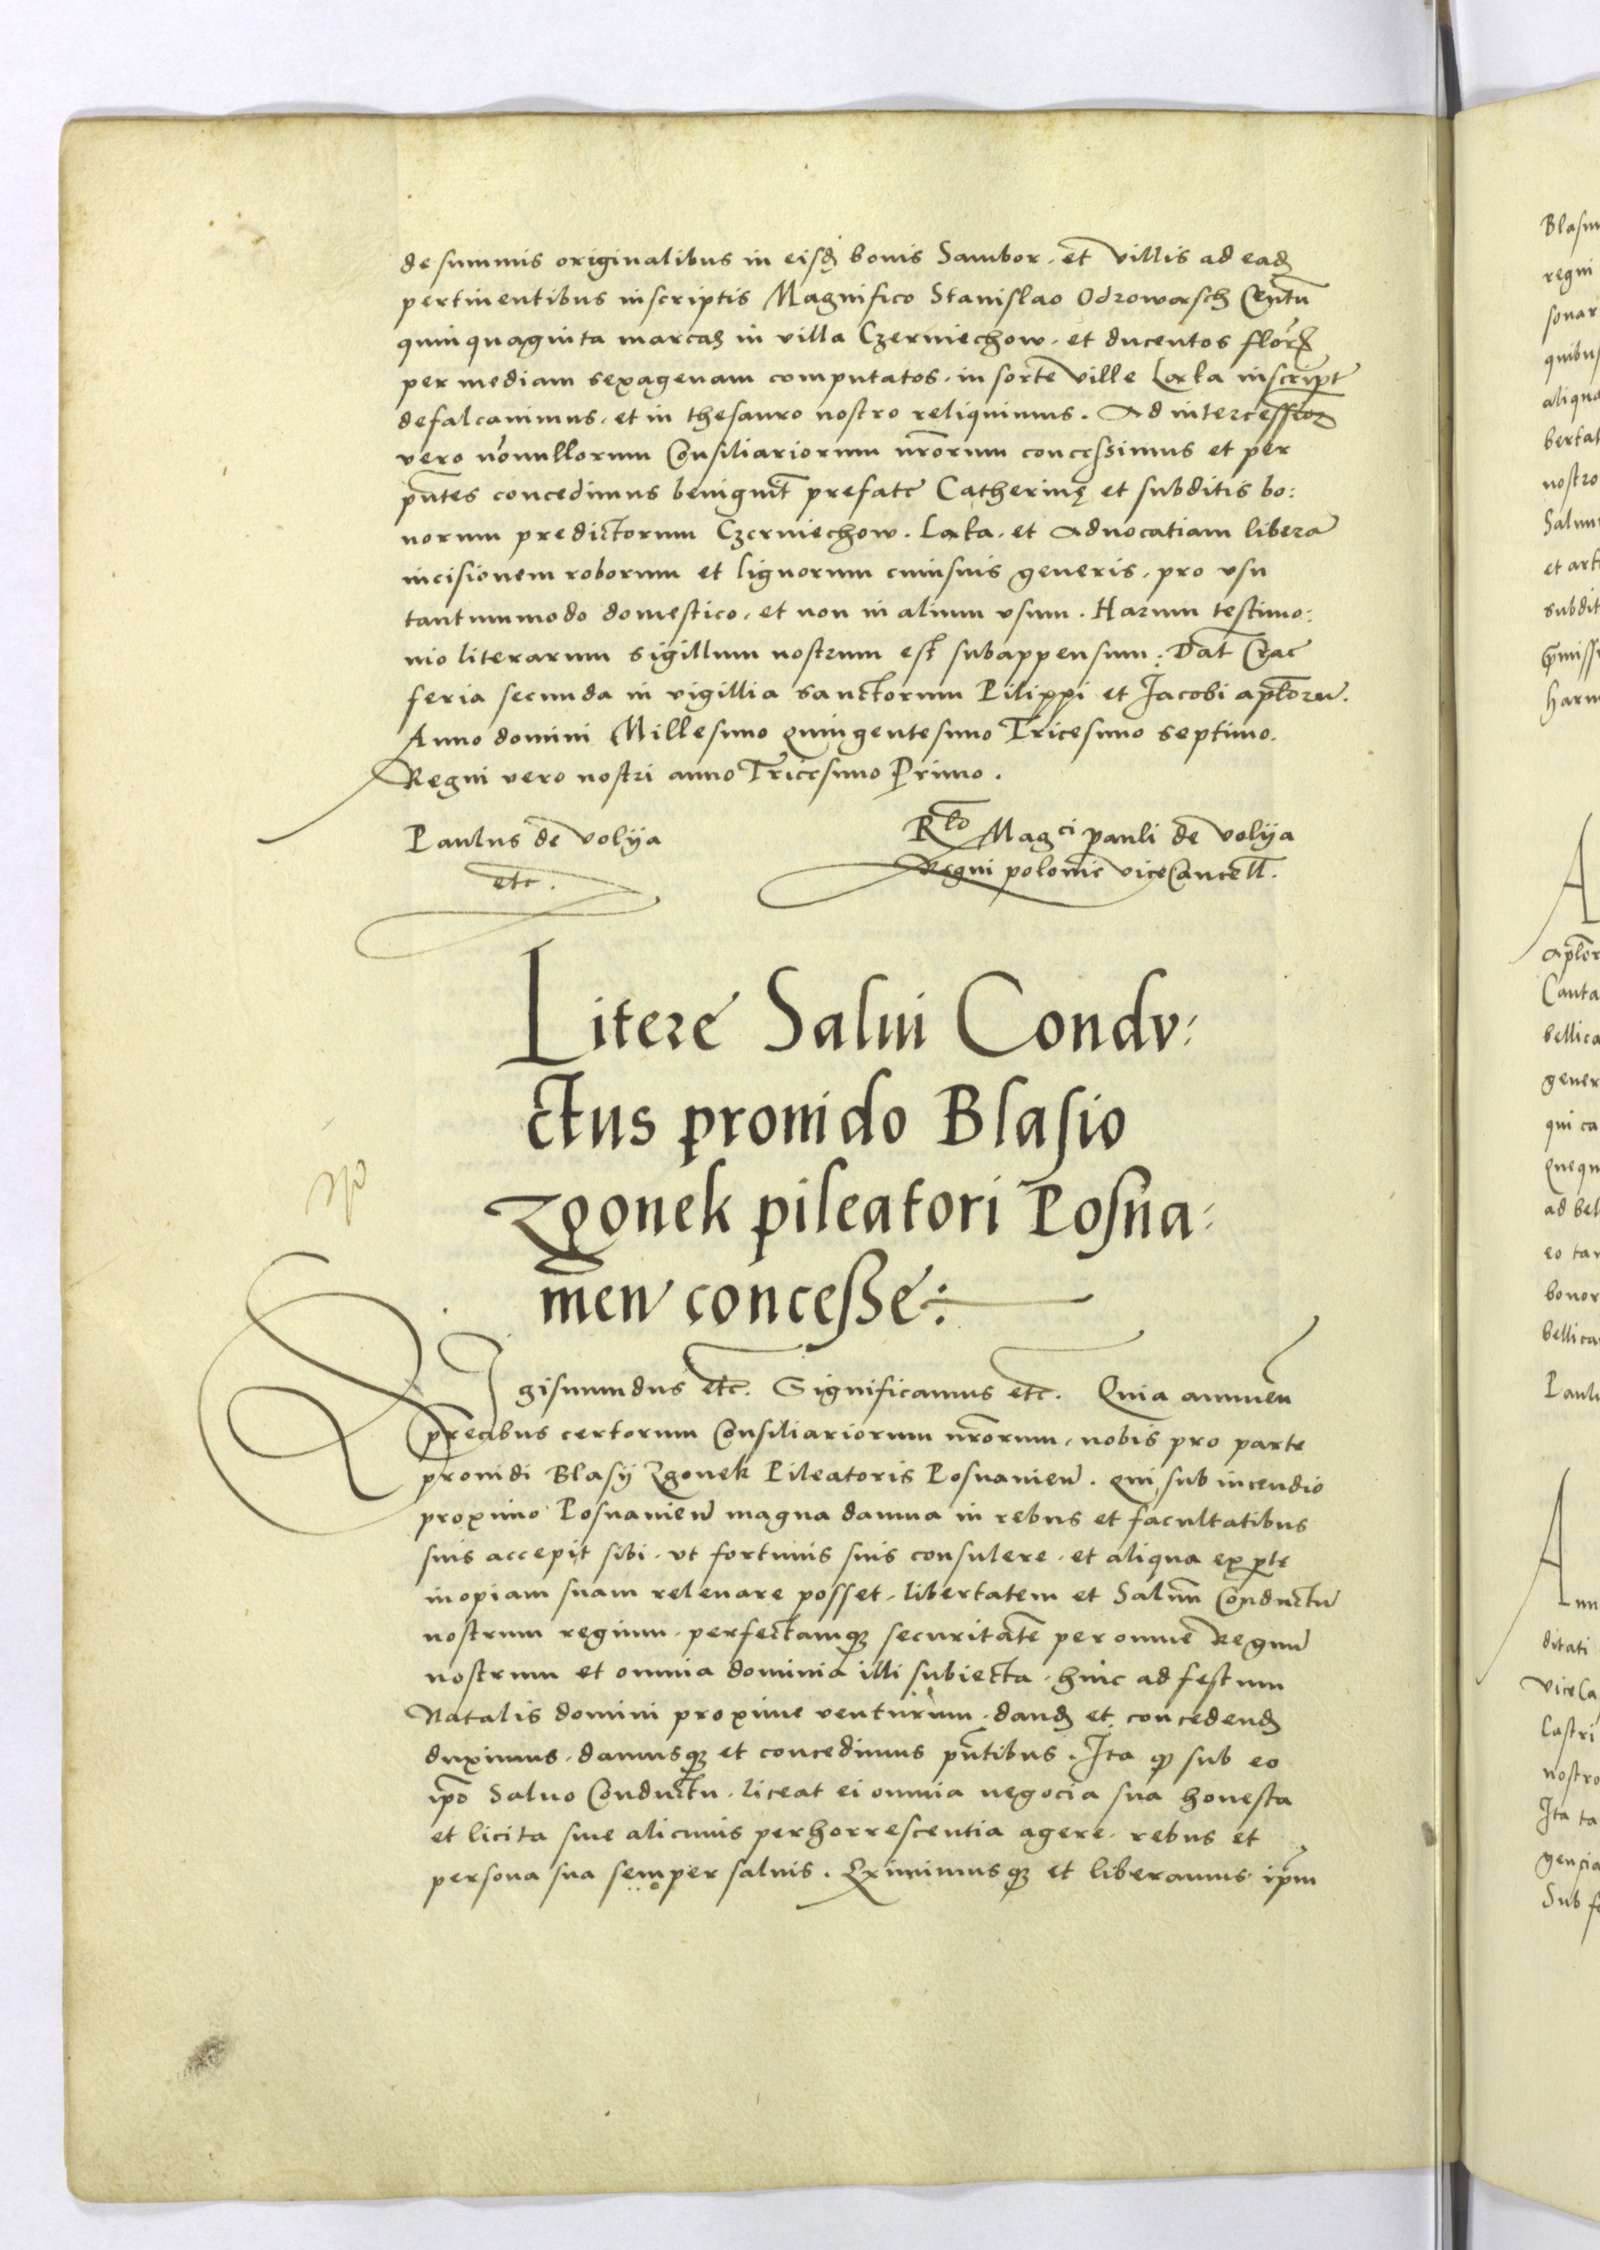 de summis originalibus in eisdꝫ bonis Sambor. et villis ad eadꝫ
pertinentibus inscriptis Magnifico Stanislao Odrowasch Centũ
quinquaginta marcas in villa Czerniechow. et ducentos florẽ
per mediam sexagenam computatos. in sorte Ville Laka inscript
defalcauimus. et in thesauro nostro reliquimus. Ad intercession
vero nõnullorum Consiliariorum nr̃orum concessimus et per
pñtes concedimus benignit̃ prefate Catherinę et subditis bo:
norum predictorum Czerniechow. Laka. et Aduocatiam liberã
incisionem roborum et lignorum cuiusuis generis. pro vsu
tantummodo domestico. et non in alium vsum. Harum testimo:
nio literarum sigillum nostrum est subappensum. Dat̃ Crac
feria secunda in vigillia sanctorum Pilippi et Jacobi aplõru.
Anno domini Millesimo quingentesimo Tricesimo septimo.
Regni vero nostri anno Tricesimo Primo.
Paulus de Volija
etc.
Rlo Magci pauli de Volija
Regni polonie viceCancell.
Litere Salui Condv:
ctus prouido Blasio
Zgonek pileatori Posna:
meñ concesse:
SIgismundus etc. Significamus etc. Quia annueñ
precibus certorum Consiliariorum nr̃orum. nobis pro parte
prouidi Blasij Zgonek Pileatoris Posnanieñ. qui sub incendio
proximo Posnanieñ magna damna in rebus et facultatibus
suis accepit sibi. vt fortunis suis consulere. et aliqua ex pte
inopiam suam releuare posset. libertatem et Saluũ Conductũ
nostrum regium. perfectamqꝫ securitatẽ per omne Regnũ
nostrum et omnia dominia illi subiecta. hinc ad festum
Natalis domini proxime venturum. dandꝫ et concedendꝫ
duximus. damusqꝫ et concedimus pñtibus. Ita qꝫ sub eo
ipõ Saluo Conductu. liceat ei omnia negocia sua honesta
et licita sine alicuius perhorrescentia agere. rebus et
persona sua semper saluis. Eximimusqꝫ et liberamus ipm̃